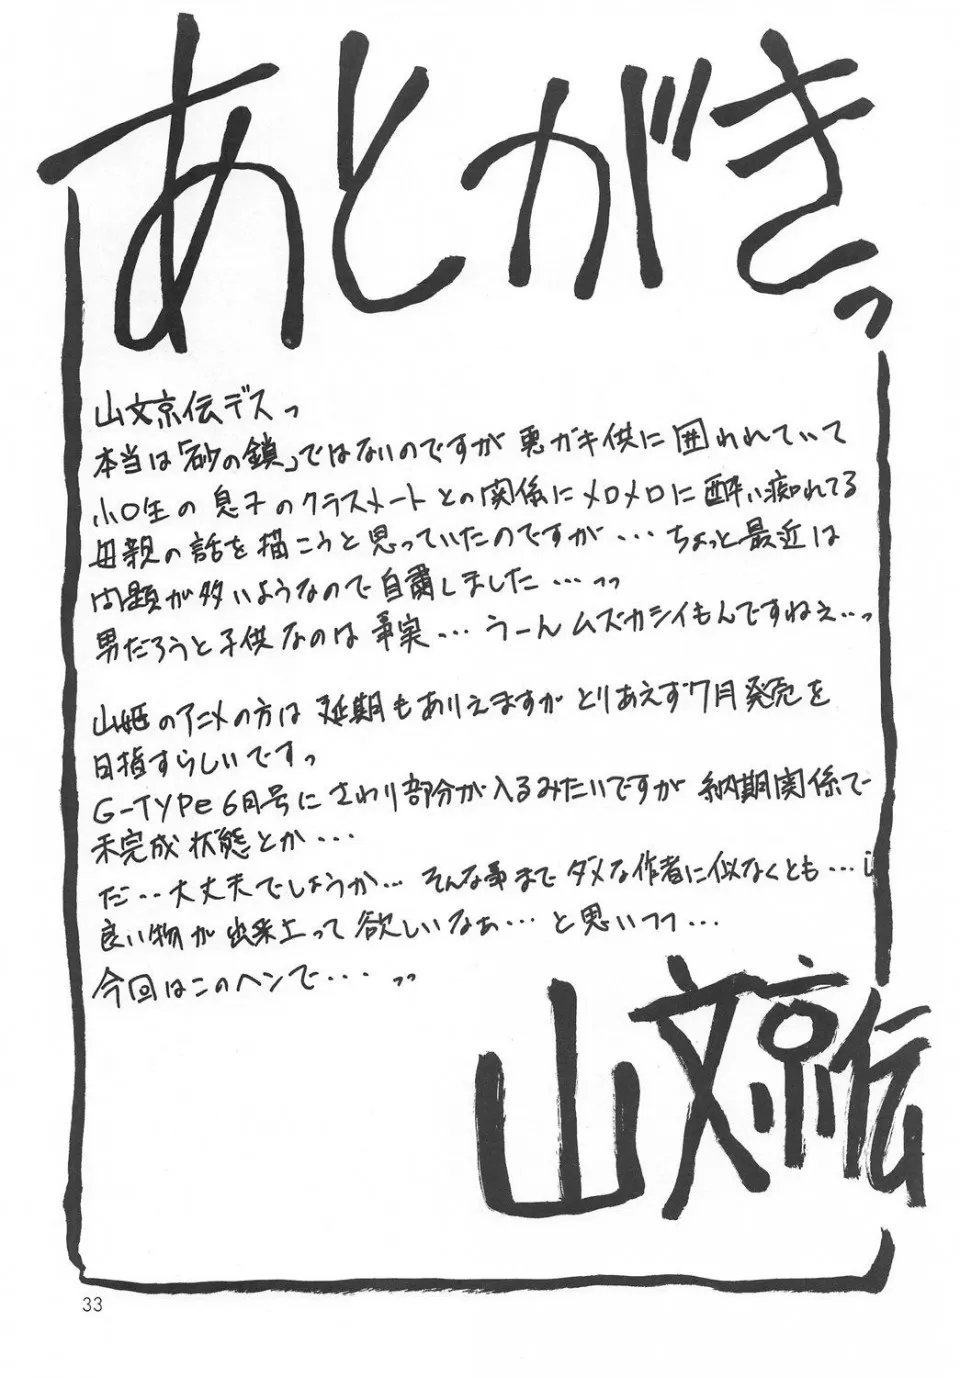 あとがきっ
山文京伝デスっ
本当は「砂の鎖」ではないのですが悪ガキ供に囲われていて
小〇生の息子のクラスメートとの関係にメロメロに酔い痴れてる
母親の話を描こうと思っていたのですが…ちょっと最近は
問題が多いようなので自粛しました…っっ
男だろうと子供なのは事実…うーんムズカシイもんですねぇ…っ
山姫のアニメの方は延期もありえますがとりあえず7月発売を
目指すらしいですっ
G-TYPe6月号にさわり部分が入るみたいですが納期関係で
未完成状態とか…
だ…大丈夫でしょうか…そんな事までダメな作者に似なくとも…
良い物が出来上って欲しいなぁ…と思いつつ…
今回はこのヘンで…っっ
山文京伝
33